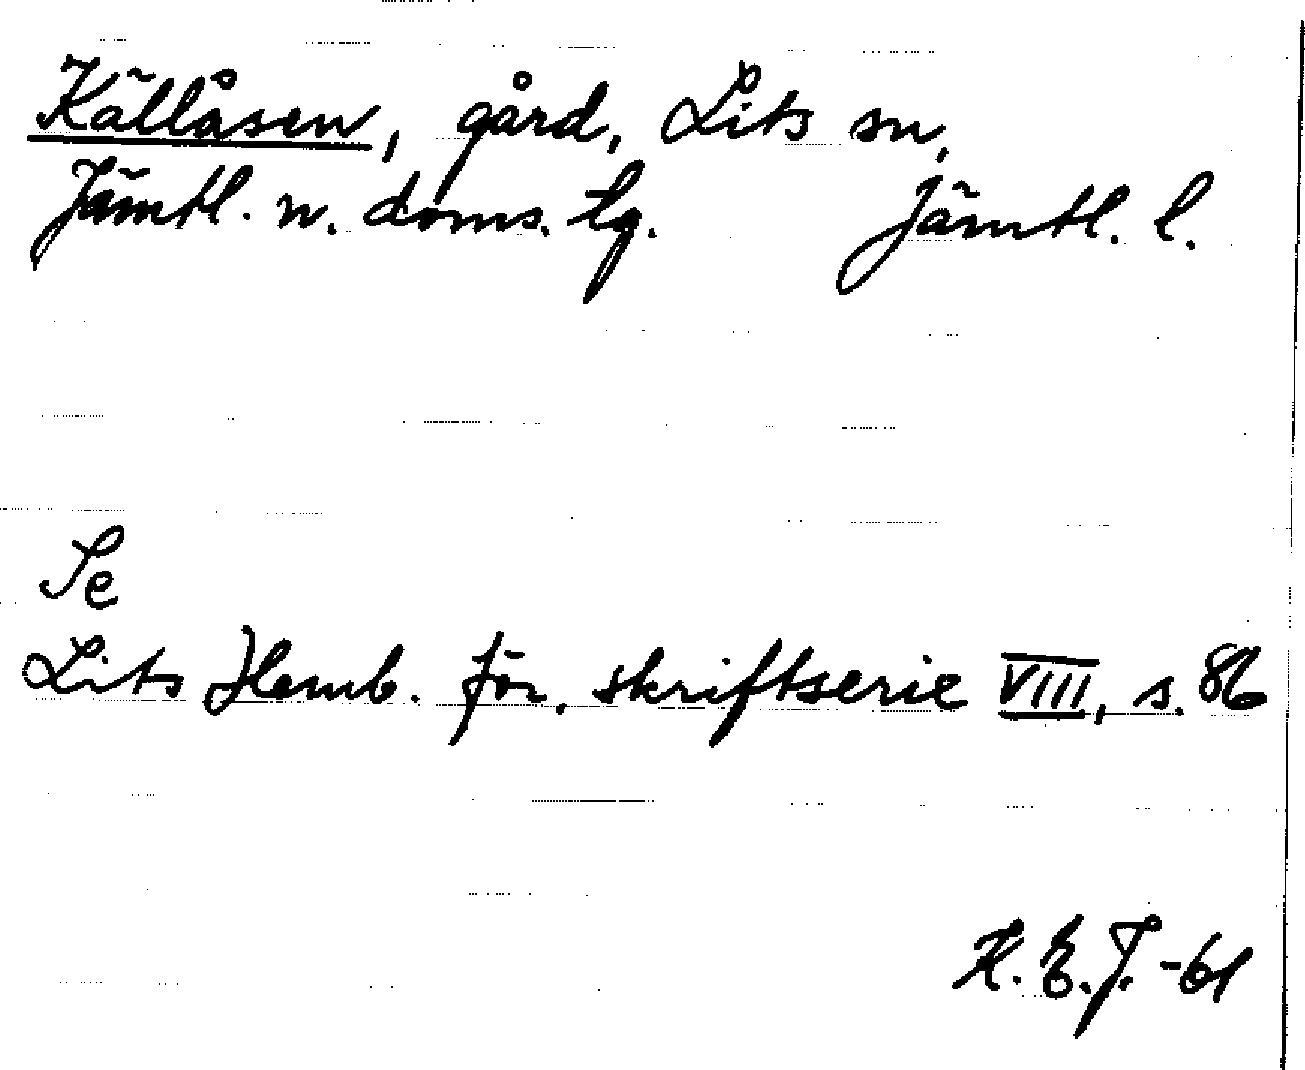 Källåsen, gård, Lits sn,
Jämtl. n. doms. tg. Jämtl. l.
Se
Lits Hemb. för. skriftserie VIII, s. 86
K. E. J. -61